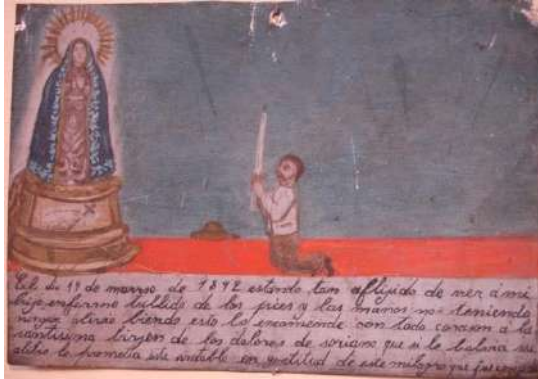 El dia 19 de marzo de 1892 estando tan aflijido de ver á mi
hijo enfermo tullido de los pies y las manos no teniendo
ningun alivio biendo esto lo encomende con todo corazon a la
santisima birgen de los dolores de soriano que si le balbia su
alibio le prometia este en gratitud de este milagro que